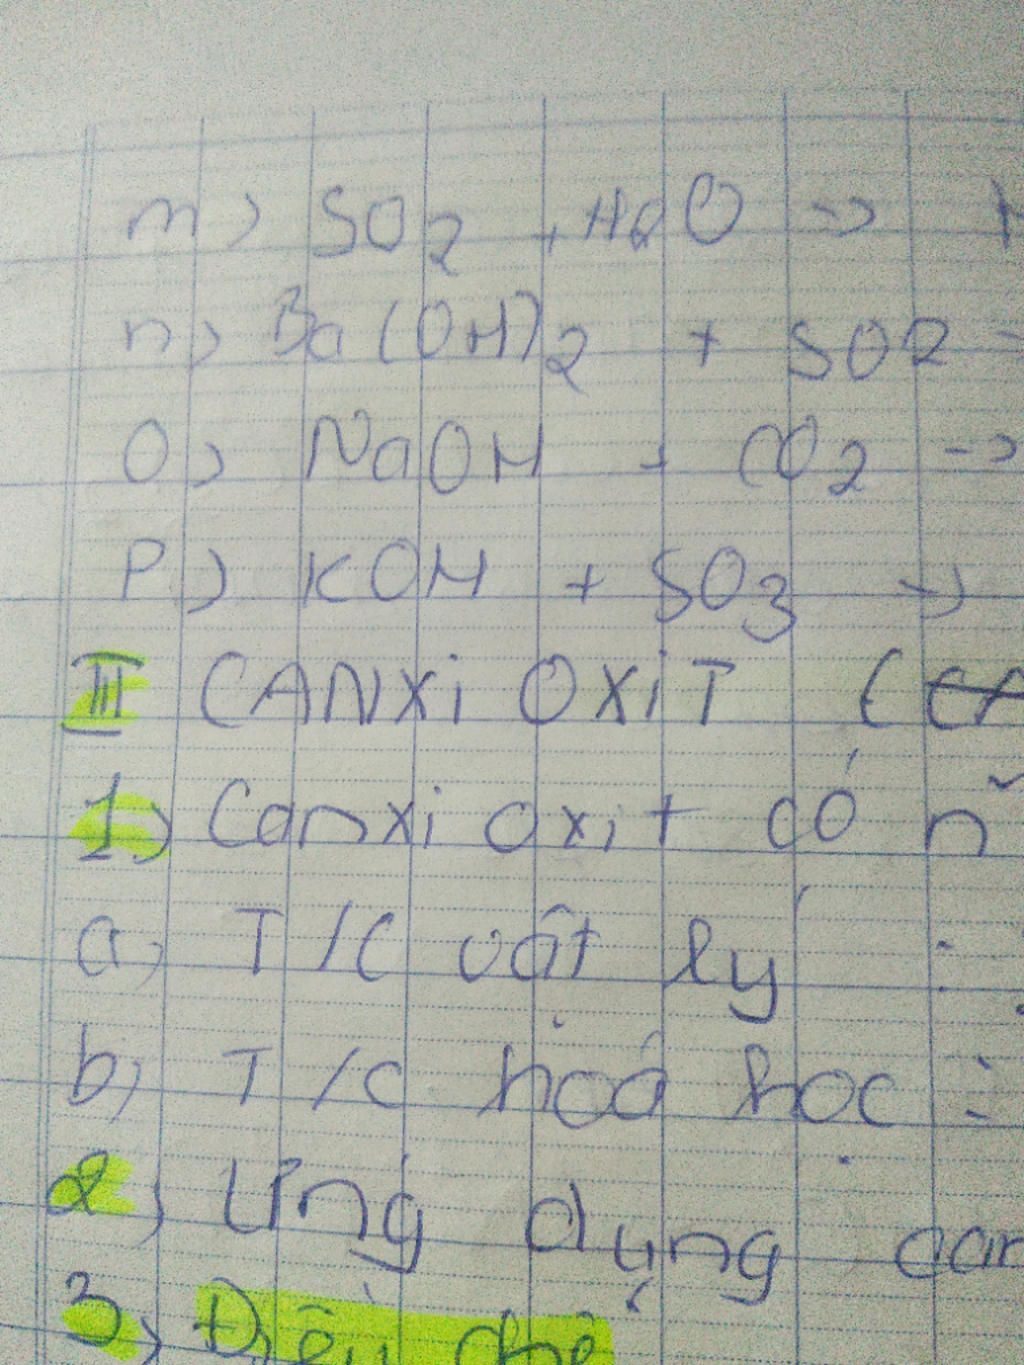 m) SO2 + H2O →
n) Ba(OH)2 + SO2
O) NaOH + CO2 →
P) KOH + SO3 →
III CANXi OXiT (
1) Canxi oxit có
a) T/C vật lý :
b) T/C hoá học :
2) Ứng dụng can
3) Điều chế